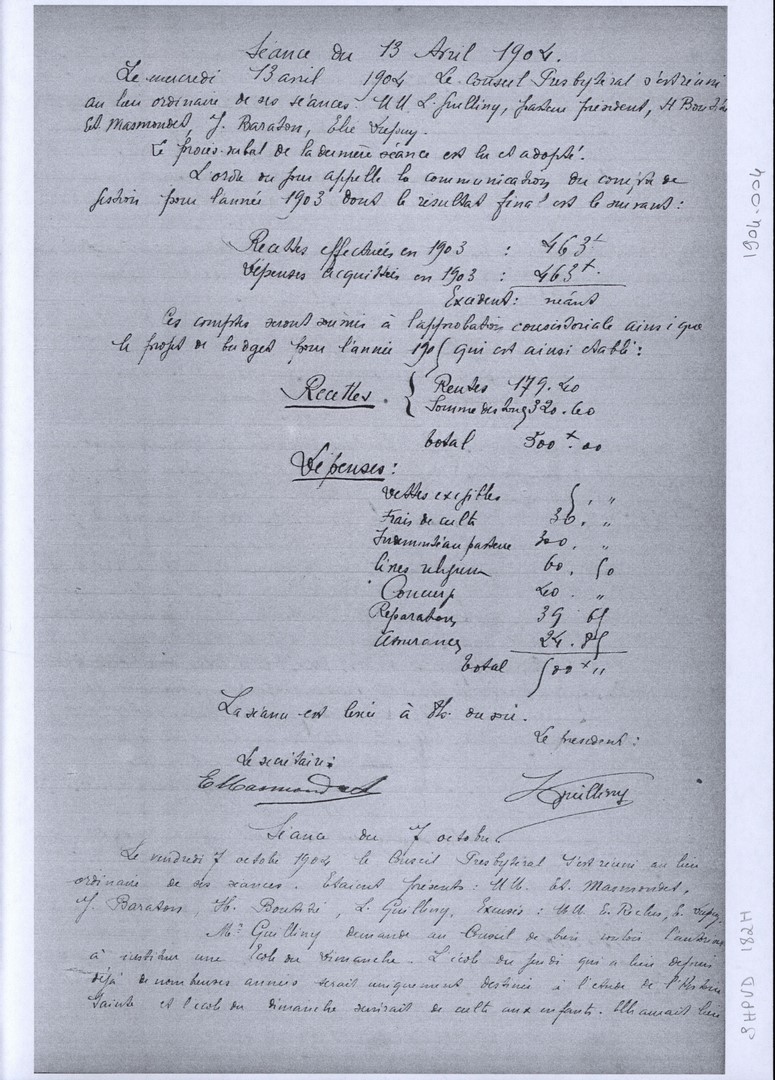 Séance du 13 Avril 1904.
Le mercredi 13 avril 1904 Le Conseil Presbytéral s'est réuni
au lieu ordinaire de ses séances. MM. L. Guilliny, pasteur président, H Boutiè
Et Masmondet, J. Baraton, Elie Dupuy.
Le procès-verbal de la dernière séance est lu et adopté.
L'ordre du jour appelle la communication du compte de
gestion pour l'année 1903 dont le résultat final est le suivant :
Recettes effectuées en 1903 : 463 +
Dépenses acquittées en 1903 : 463 +.
Excédent : néant
Ces comptes seront soumis à l'approbation consistoriale ainsi que
le projet de budget pour l'année 1905 qui est ainsi établi :
Recettes { Rentes 179.40
Somme des 320.60
total 500 +.00
Dépenses :
Dettes exigibles 5 . "
Frais de culte 30 . "
Indemnité au pasteur 300 . "
Livres religieux 60 . 50
Concierge 40 . "
Réparations 39 65
Assurances 24.85
total 500 + "
La séance est levée à 8h. du soir.
Le président :
Le secrétaire :
E Masmondet
L Guilliny
Séance du 7 octobre
Le vendredi 7 octobre 1904 le Conseil Presbytéral s'est réuni au lieu
ordinaire de ses séances. Étaient présents : MM. Et. Masmondet,
J. Baraton, H. Boutiè, L. Guilliny, Excusés : MM E. Roches, E. Dupuy.
Mr. Guilliny demande au Conseil de bien vouloir l'autoriser
à instituer une École du Dimanche. L'école du Jeudi qui a lieu depuis
déjà de nombreuses années serait uniquement destinée à l'étude de l'Histoire
Sainte et l'école du dimanche servirait de culte aux enfants. Elle aurait lieu
1904.004
SHPVD 182H